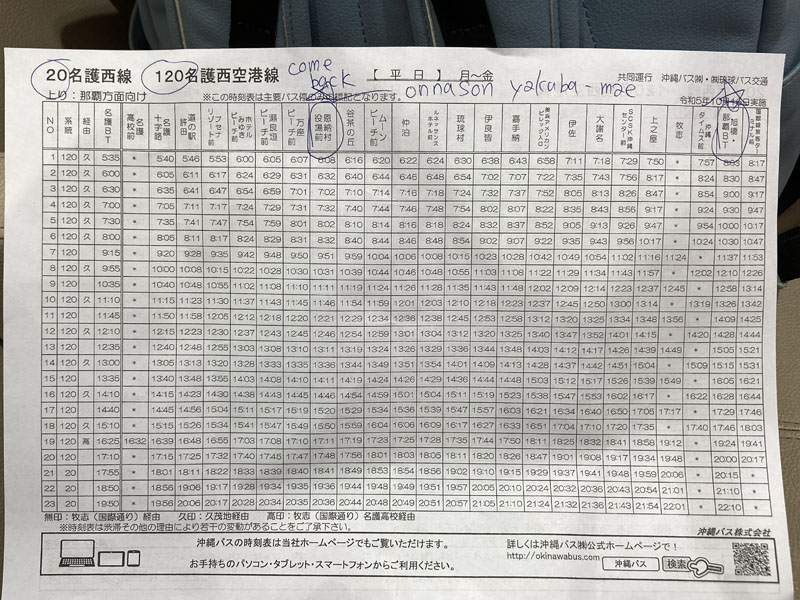 come
back
20名護西線 120名護西空港線 【 平 日 】 月～金 共同運行 沖縄バス㈱・㈱琉球バス交通
onnason yakuba-mae
上り：那覇方面向け ※この時刻表は主要バス停のみの標記となります。 令和5年10月 実施
NO 系統 経由 名護BT 名護高校前 名護十字路 道の駅許田 ブセナリゾート前 みゆきホテルビーチ前 瀬良垣ビーチ前 万座ビーチ前 恩納村役場前 谷茶の丘 ムーンビーチ前 仲泊 ルネッサンスホテル前 琉球村 伊良皆 嘉手納 美浜アメリカンビレッジ入口 伊佐 大謝名 SCSK沖縄センター前 上之屋 牧志 沖縄タイムス前 旭橋・那覇BT
1 120 久 5:35 * 5:40 5:46 5:53 6:00 6:05 6:07 6:08 6:16 6:20 6:22 6:24 6:30 6:38 6:43 6:58 7:11 7:18 7:29 7:50 * 7:57 8:03 8:17
2 120 久 6:00 * 6:05 6:11 6:17 6:24 6:29 6:31 6:32 6:40 6:44 6:46 6:48 6:54 7:02 7:07 7:22 7:35 7:42 7:54 8:17 * 8:24 8:30 8:47
3 120 久 6:30 * 6:35 6:41 6:47 6:54 6:59 7:01 7:02 7:10 7:14 7:16 7:18 7:24 7:32 7:37 7:52 8:05 8:13 8:26 8:47 * 8:54 9:00 9:17
4 120 久 7:00 * 7:05 7:11 7:17 7:24 7:29 7:31 7:32 7:40 7:44 7:46 7:48 7:54 8:02 8:07 8:22 8:35 8:43 8:56 9:17 * 9:24 9:30 9:47
5 120 久 7:30 * 7:35 7:41 7:47 7:54 7:59 8:01 8:02 8:10 8:14 8:16 8:18 8:24 8:32 8:37 8:52 9:05 9:13 9:26 9:47 * 9:54 10:00 10:17
6 120 久 8:00 * 8:05 8:11 8:17 8:24 8:29 8:31 8:32 8:40 8:44 8:46 8:48 8:54 9:02 9:07 9:22 9:35 9:43 9:56 10:17 * 10:24 10:30 10:47
7 120 9:15 * 9:20 9:28 9:35 9:42 9:48 9:50 9:51 9:59 10:04 10:06 10:08 10:15 10:23 10:29 10:42 10:49 10:54 11:02 11:16 11:24 * 11:37 11:53
8 120 久 9:55 * 10:00 10:08 10:15 10:22 10:28 10:30 10:31 10:39 10:44 10:46 10:48 10:55 11:03 11:08 11:22 11:29 11:34 11:43 11:57 * 12:02 12:10 12:26
9 120 10:35 * 10:40 10:48 10:55 11:02 11:08 11:10 11:11 11:19 11:24 11:26 11:28 11:35 11:43 11:48 12:02 12:09 12:14 12:23 12:37 12:45 * 12:58 13:14
10 120 久 11:10 * 11:15 11:23 11:30 11:37 11:43 11:45 11:46 11:54 11:59 12:01 12:03 12:10 12:18 12:23 12:37 12:45 12:50 13:00 13:14 * 13:19 13:26 13:42
11 120 11:45 * 11:50 11:58 12:05 12:12 12:18 12:20 12:21 12:29 12:34 12:36 12:38 12:45 12:53 12:58 13:12 13:20 13:25 13:34 13:48 13:56 * 14:09 14:25
12 120 久 12:10 * 12:15 12:23 12:30 12:37 12:43 12:45 12:46 12:54 12:59 13:01 13:04 13:12 13:20 13:25 13:40 13:47 13:52 14:01 14:15 * 14:20 14:28 14:44
13 120 12:35 * 12:40 12:48 12:55 13:03 13:08 13:10 13:11 13:19 13:24 13:26 13:29 13:36 13:44 13:48 14:03 14:12 14:17 14:26 14:39 14:49 * 15:05 15:21
14 120 久 13:00 * 13:05 13:13 13:20 13:28 13:33 13:35 13:36 13:44 13:49 13:51 13:54 14:01 14:09 14:13 14:28 14:37 14:42 14:51 15:04 * 15:09 15:15 15:31
15 120 13:35 * 13:40 13:48 13:55 14:03 14:08 14:10 14:11 14:19 14:24 14:26 14:29 14:36 14:44 14:48 15:03 15:12 15:17 15:26 15:39 15:49 * 16:05 16:21
16 120 久 14:10 * 14:15 14:23 14:30 14:38 14:43 14:45 14:46 14:54 14:59 15:01 15:04 15:11 15:19 15:23 15:38 15:47 15:53 16:02 16:17 * 16:22 16:28 16:44
17 120 14:40 * 14:45 14:56 15:04 15:11 15:17 15:19 15:20 15:29 15:34 15:36 15:39 15:47 15:57 16:03 16:21 16:34 16:40 16:50 17:05 17:17 * 17:29 17:46
18 120 久 15:10 * 15:15 15:26 15:34 15:41 15:47 15:49 15:50 15:59 16:04 16:06 16:09 16:17 16:27 16:33 16:51 17:04 17:10 17:20 17:35 * 17:40 17:46 18:03
19 120 高 16:25 16:32 16:39 16:48 16:55 17:03 17:08 17:10 17:11 17:19 17:23 17:25 17:28 17:35 17:44 17:50 18:11 18:25 18:32 18:41 18:58 19:12 * 19:24 19:41
20 120 17:10 * 17:15 17:25 17:32 17:40 17:45 17:47 17:48 17:56 18:00 18:03 18:05 18:11 18:20 18:26 18:47 19:01 19:08 19:17 19:34 19:48 * 20:00 20:17
21 20 17:55 * 18:01 18:11 18:22 18:33 18:39 18:40 18:41 18:49 18:53 18:54 18:56 19:02 19:10 19:15 19:29 19:37 19:41 19:49 19:58 20:06 * 20:15 *
22 20 18:50 * 18:56 19:06 19:17 19:28 19:34 19:35 19:36 19:44 19:48 19:49 19:51 19:57 20:05 20:10 20:24 20:32 20:36 20:44 20:53 21:01 * 21:10 *
23 20 19:50 * 19:56 20:06 20:17 20:28 20:34 20:35 20:36 20:44 20:48 20:49 20:51 20:57 21:05 21:10 21:24 21:32 21:36 21:43 21:54 22:01 * 22:10 *
無印：牧志（国際通り）経由 久印：久茂地経由 高印：牧志（国際通り）名護高校経由
※時刻表は渋滞その他の理由により若干の変動があることをご了承下さい。 沖縄バス株式会社
沖縄バスの時刻表は当社ホームページでもご覧いただけます。 詳しくは沖縄バス㈱公式ホームページで！
http://okinawabus.com
お手持ちのパソコン・タブレット・スマートフォンからご利用ください。 沖縄バス 検索